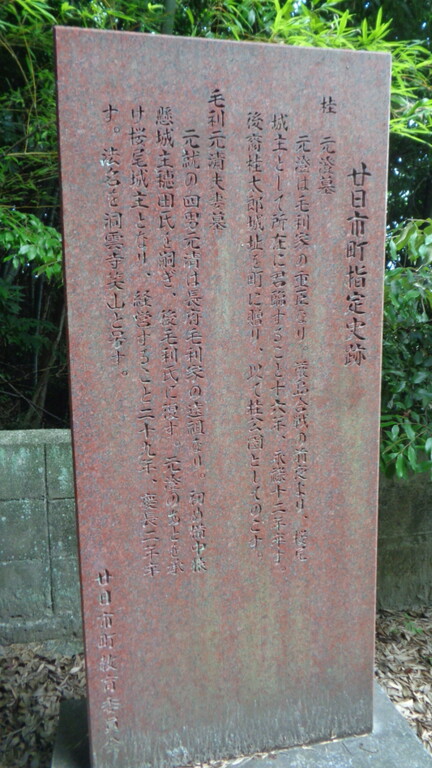 廿日市町指定史跡
桂 元澄墓
元澄は毛利家の重臣なり、厳島合戦の前史より、桜尾
城主として所在に君臨すること十六年、永禄十二年卒す。
後裔桂太郎城址を町に贈り、以て桂公園としてのこす。
毛利元清夫妻墓
元就の四男元清は長府毛利家の造祖なり。初め備中猿
懸城主穂田氏を嗣ぎ、後毛利氏に復す。元澄のあとを承
け桜尾城主となり、経営すること二十九年、慶長二年卒
す。法名を洞雲寺笑山と号す。
廿日市町教育委員会